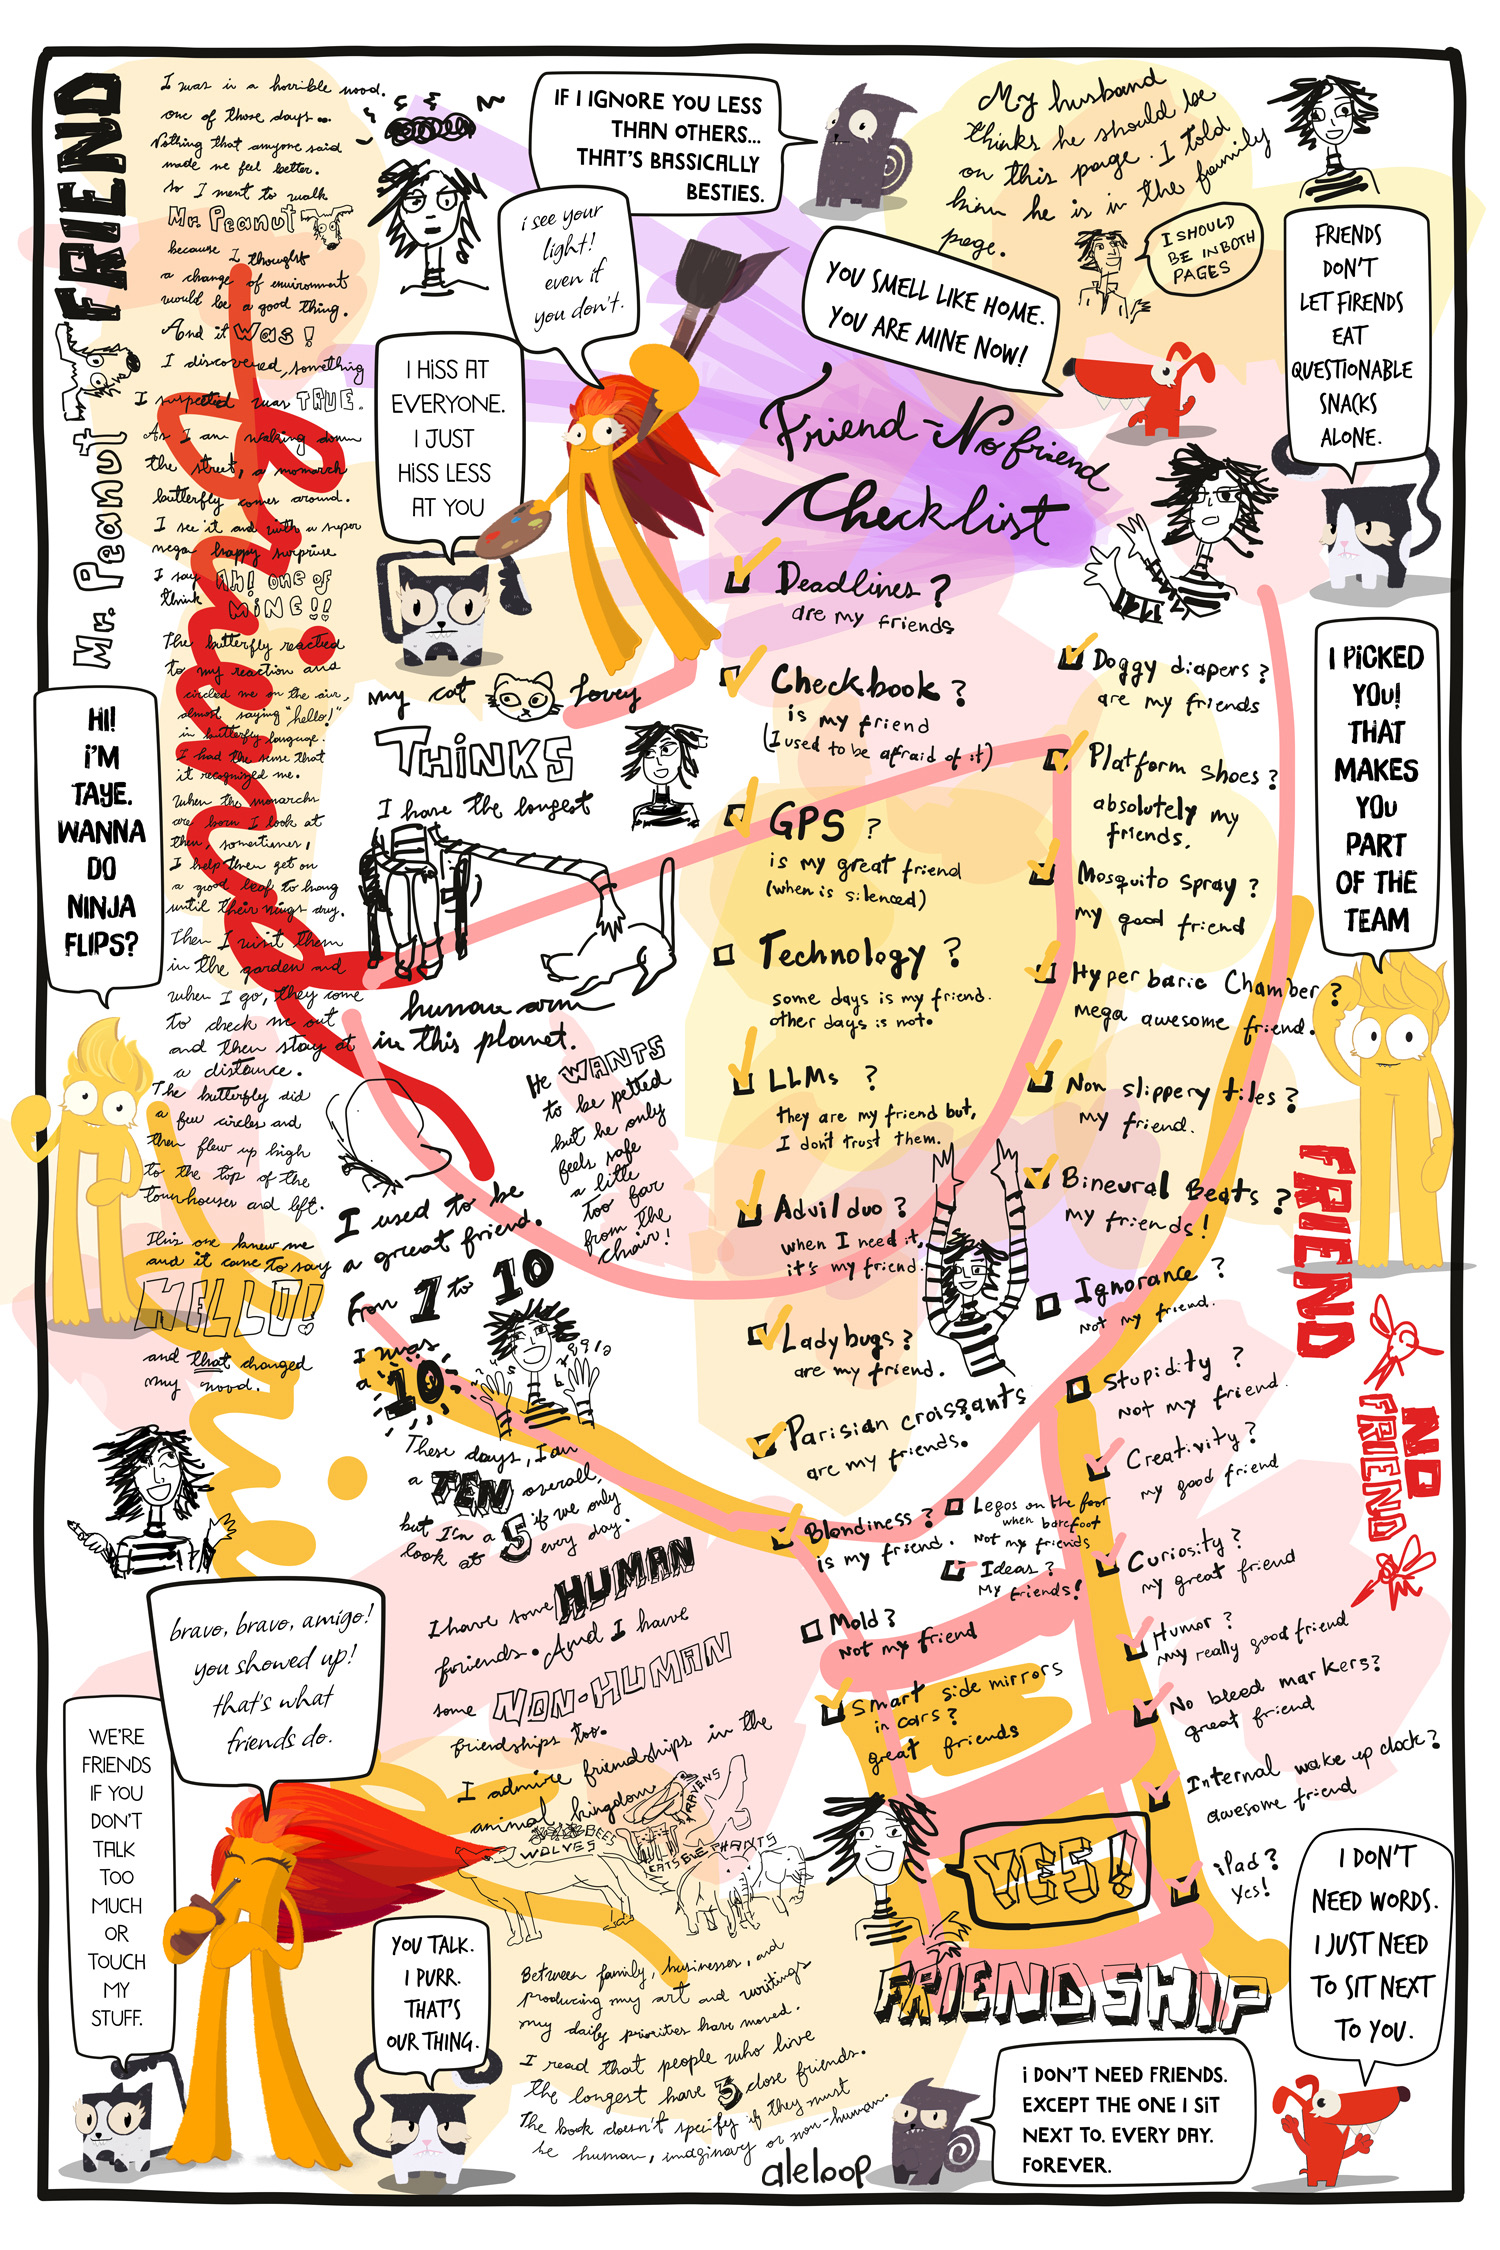 FRIEND
Mr. Peanut
I was in a horrible mood.
one of those days...
Nothing that anyone said
made me feel better.
So I went to walk
Mr. Peanut
because I thought
a change of environment
would be a good thing.
And it was!
I discovered, something
I suspected was TRUE.
As I am walking down
the street, a monarch
butterfly comes around.
I see it and with a super
mega happy surprise
I say
think
Ah! one of
MiNE!!
The butterfly reacted
to my reaction and
circled me on the air,
almost saying "hello!"
in butterfly language.
I had the sense that
it recognized me.
When the monarchs
are born I look at
them, sometimes,
I help them get on
a good leaf to hang
until their wings dry.
Then I visit them
in the garden and
when I go, they come
to check me out
and then stay at
a distance.
The butterfly did
a few circles and
then flew up high
to the top of the
townhouses and left.
This one knew me
and it came to say
HELLO!
and that changed
my mood.
IF I IGNORE YOU LESS
THAN OTHERS...
THAT'S BASSICALLY
BESTIES.
i see your
light!
even if
you don't.
My husband
thinks he should be
on this page. I told
him he is in the family
page.
I SHOULD
BE IN BOTH
PAGES
YOU SMELL LIKE HOME.
YOU ARE MINE NOW!
FRIENDS
DON'T
LET FIRENDS
EAT
QUESTIONABLE
SNACKS
ALONE.
I HISS AT
EVERYONE.
I JUST
HISS LESS
AT YOU
HI!
I'M
TAYE.
WANNA
DO
NINJA
FLIPS?
my cat Lovey
THiNKS
I have the longest
human arm
in this planet.
He WANTS
to be petted
but he only
feels safe
a little
too far
from the
chair!
I used to be
a great friend.
From 1 to 10
I was
a 10
1 2 3 4 5
6 7 8 9 10
These days, I am
a TEN overall,
but I'm a 5 if we only
look at every day.
I have some HUMAN
friends. And I have
some NON-HUMAN
friendships too.
I admire friendships in the
animal kingdom
BEES
WOLVES
RAVENS
CATS
ELEPHANTS
Between family, businesses, and
producing my art and writings
my daily priorities have moved.
I read that people who live
the longest have 5 close friends.
The book doesn't specify if they must
be human, imaginary or non-human.
aleloop
Friend-No friend
Checklist
Deadlines?
are my friends
Checkbook?
is my friend
(I used to be afraid of it)
GPS ?
is my great friend
(when is silenced)
Technology ?
some days is my friend.
other days is not.
LLMs ?
they are my friend but,
I don't trust them.
Advil duo ?
when I need it,
it's my friend.
Ladybugs?
are my friend.
Parisian croissants
are my friends.
Blondiness?
is my friend.
Legos on the floor
when barefoot
Not my friends
Ideas?
My friends!
Mold?
Not my friend
Smart side mirrors
in cars?
great friends
Doggy diapers?
are my friends
Platform shoes?
absolutely my
friends.
Mosquito spray?
my good friend
Hyperbaric Chamber?
mega awesome friend.
Non slippery tiles?
my friend.
Bineural Beats?
my friends!
Ignorance ?
Not my friend.
Stupidity ?
Not my friend.
Creativity?
my good friend
Curiosity?
my great friend
Humor?
my really good friend
No bleed markers?
great friend
Internal wake up clock?
awesome friend
iPad?
yes!
I PICKED
YOU!
THAT
MAKES
YOU
PART
OF THE
TEAM
FRIEND
NO
FRIEND
YES!
FRIENDSHIP
bravo, bravo, amigo!
you showed up!
that's what
friends do.
WE'RE
FRIENDS
IF YOU
DON'T
TALK
TOO
MUCH
OR
TOUCH
MY
STUFF.
YOU TALK.
I PURR.
THAT'S
OUR THING.
I DON'T NEED FRIENDS.
EXCEPT THE ONE I SIT
NEXT TO. EVERY DAY.
FOREVER.
I DON'T
NEED WORDS.
I JUST NEED
TO SIT NEXT
TO YOU.